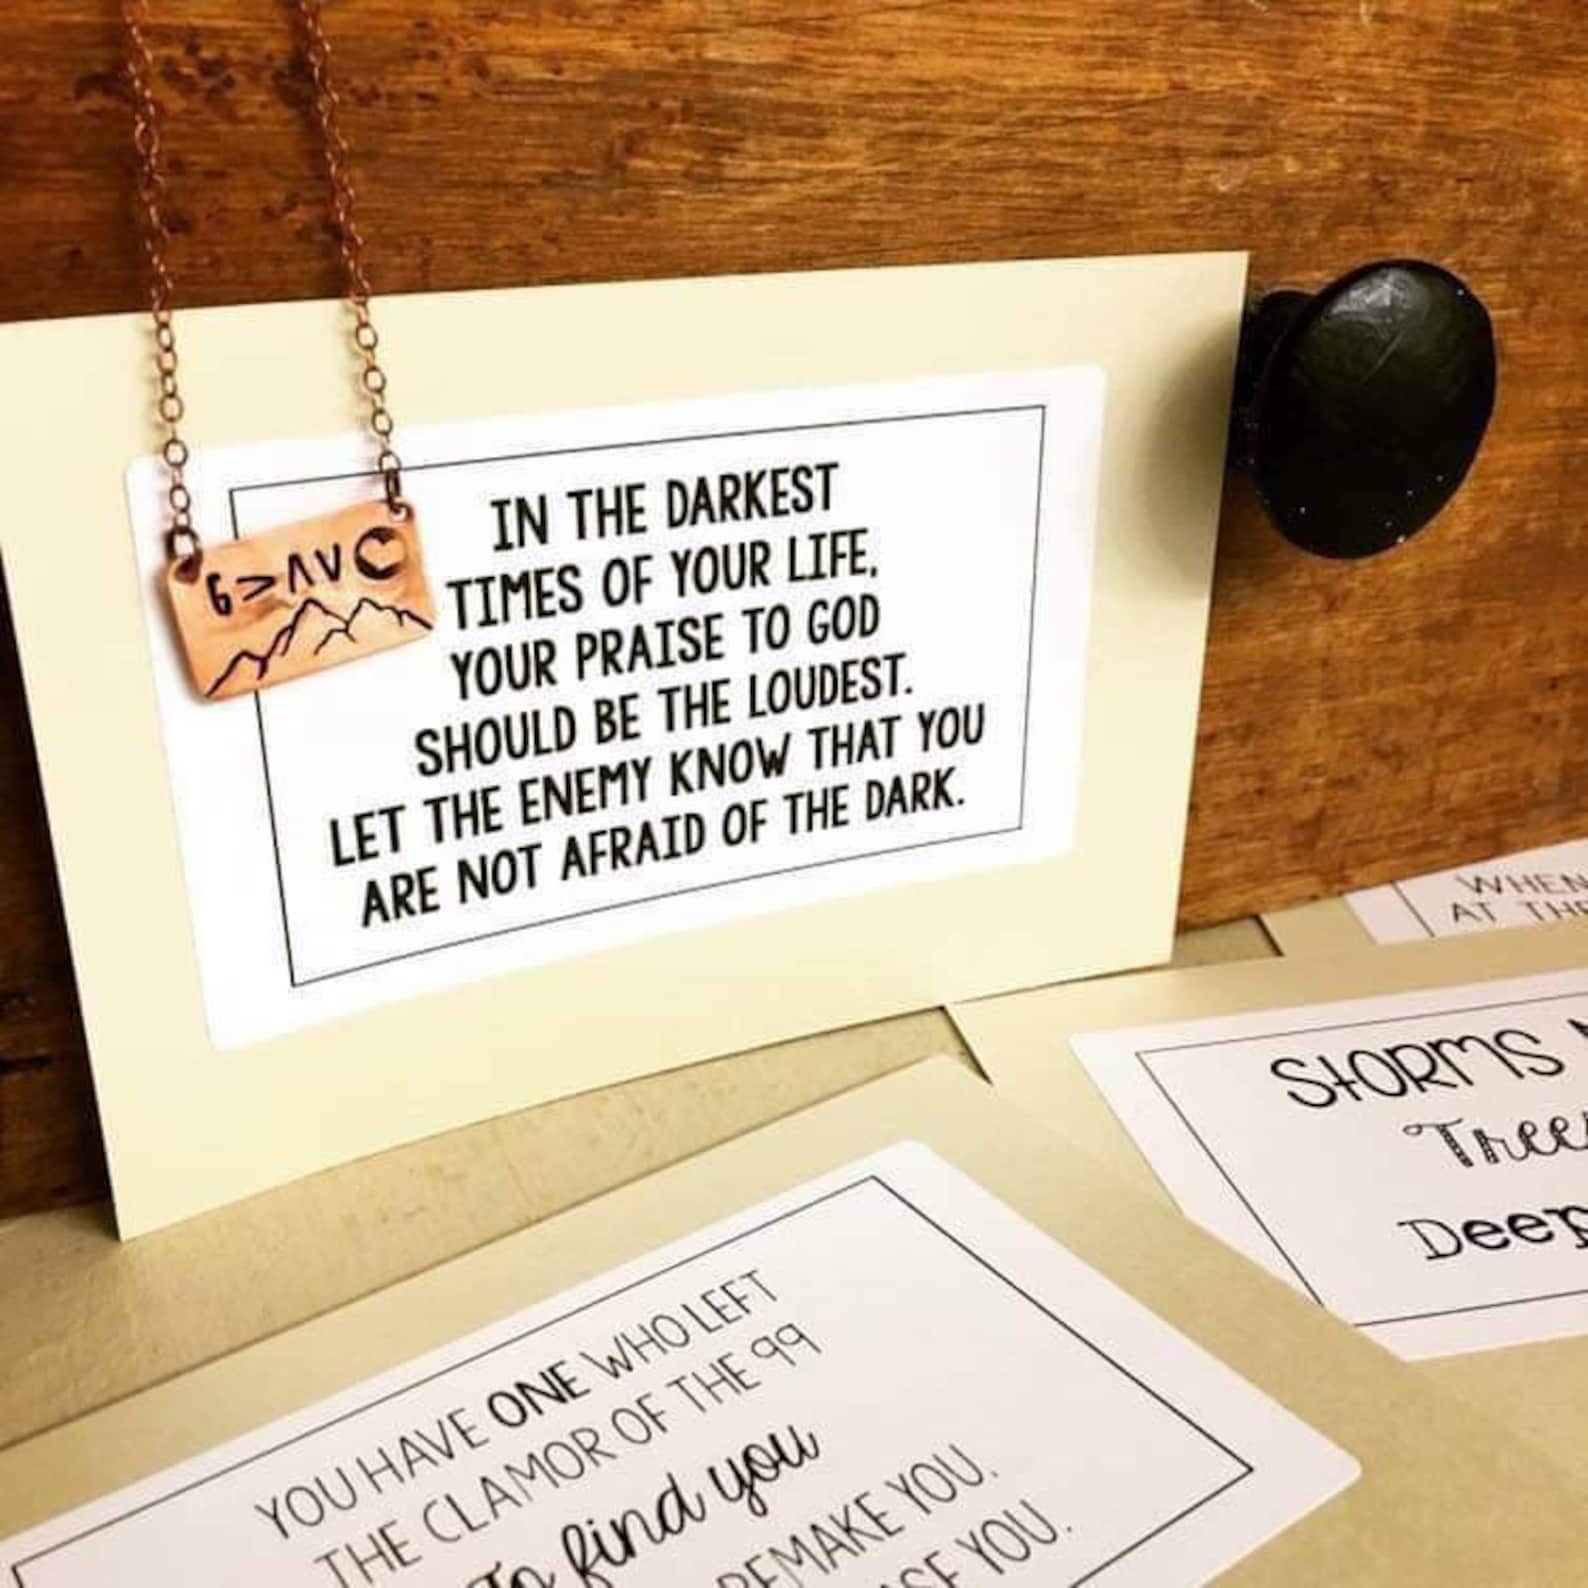 G>ΛV
IN THE DARKEST
TIMES OF YOUR LIFE,
YOUR PRAISE TO GOD
SHOULD BE THE LOUDEST.
LET THE ENEMY KNOW THAT YOU
ARE NOT AFRAID OF THE DARK.
WHEN
AT THE
STORMS
Trees
Deep
YOU HAVE ONE WHO LEFT
THE CLAMOR OF THE 99
To find you
REMAKE YOU.
YOU.